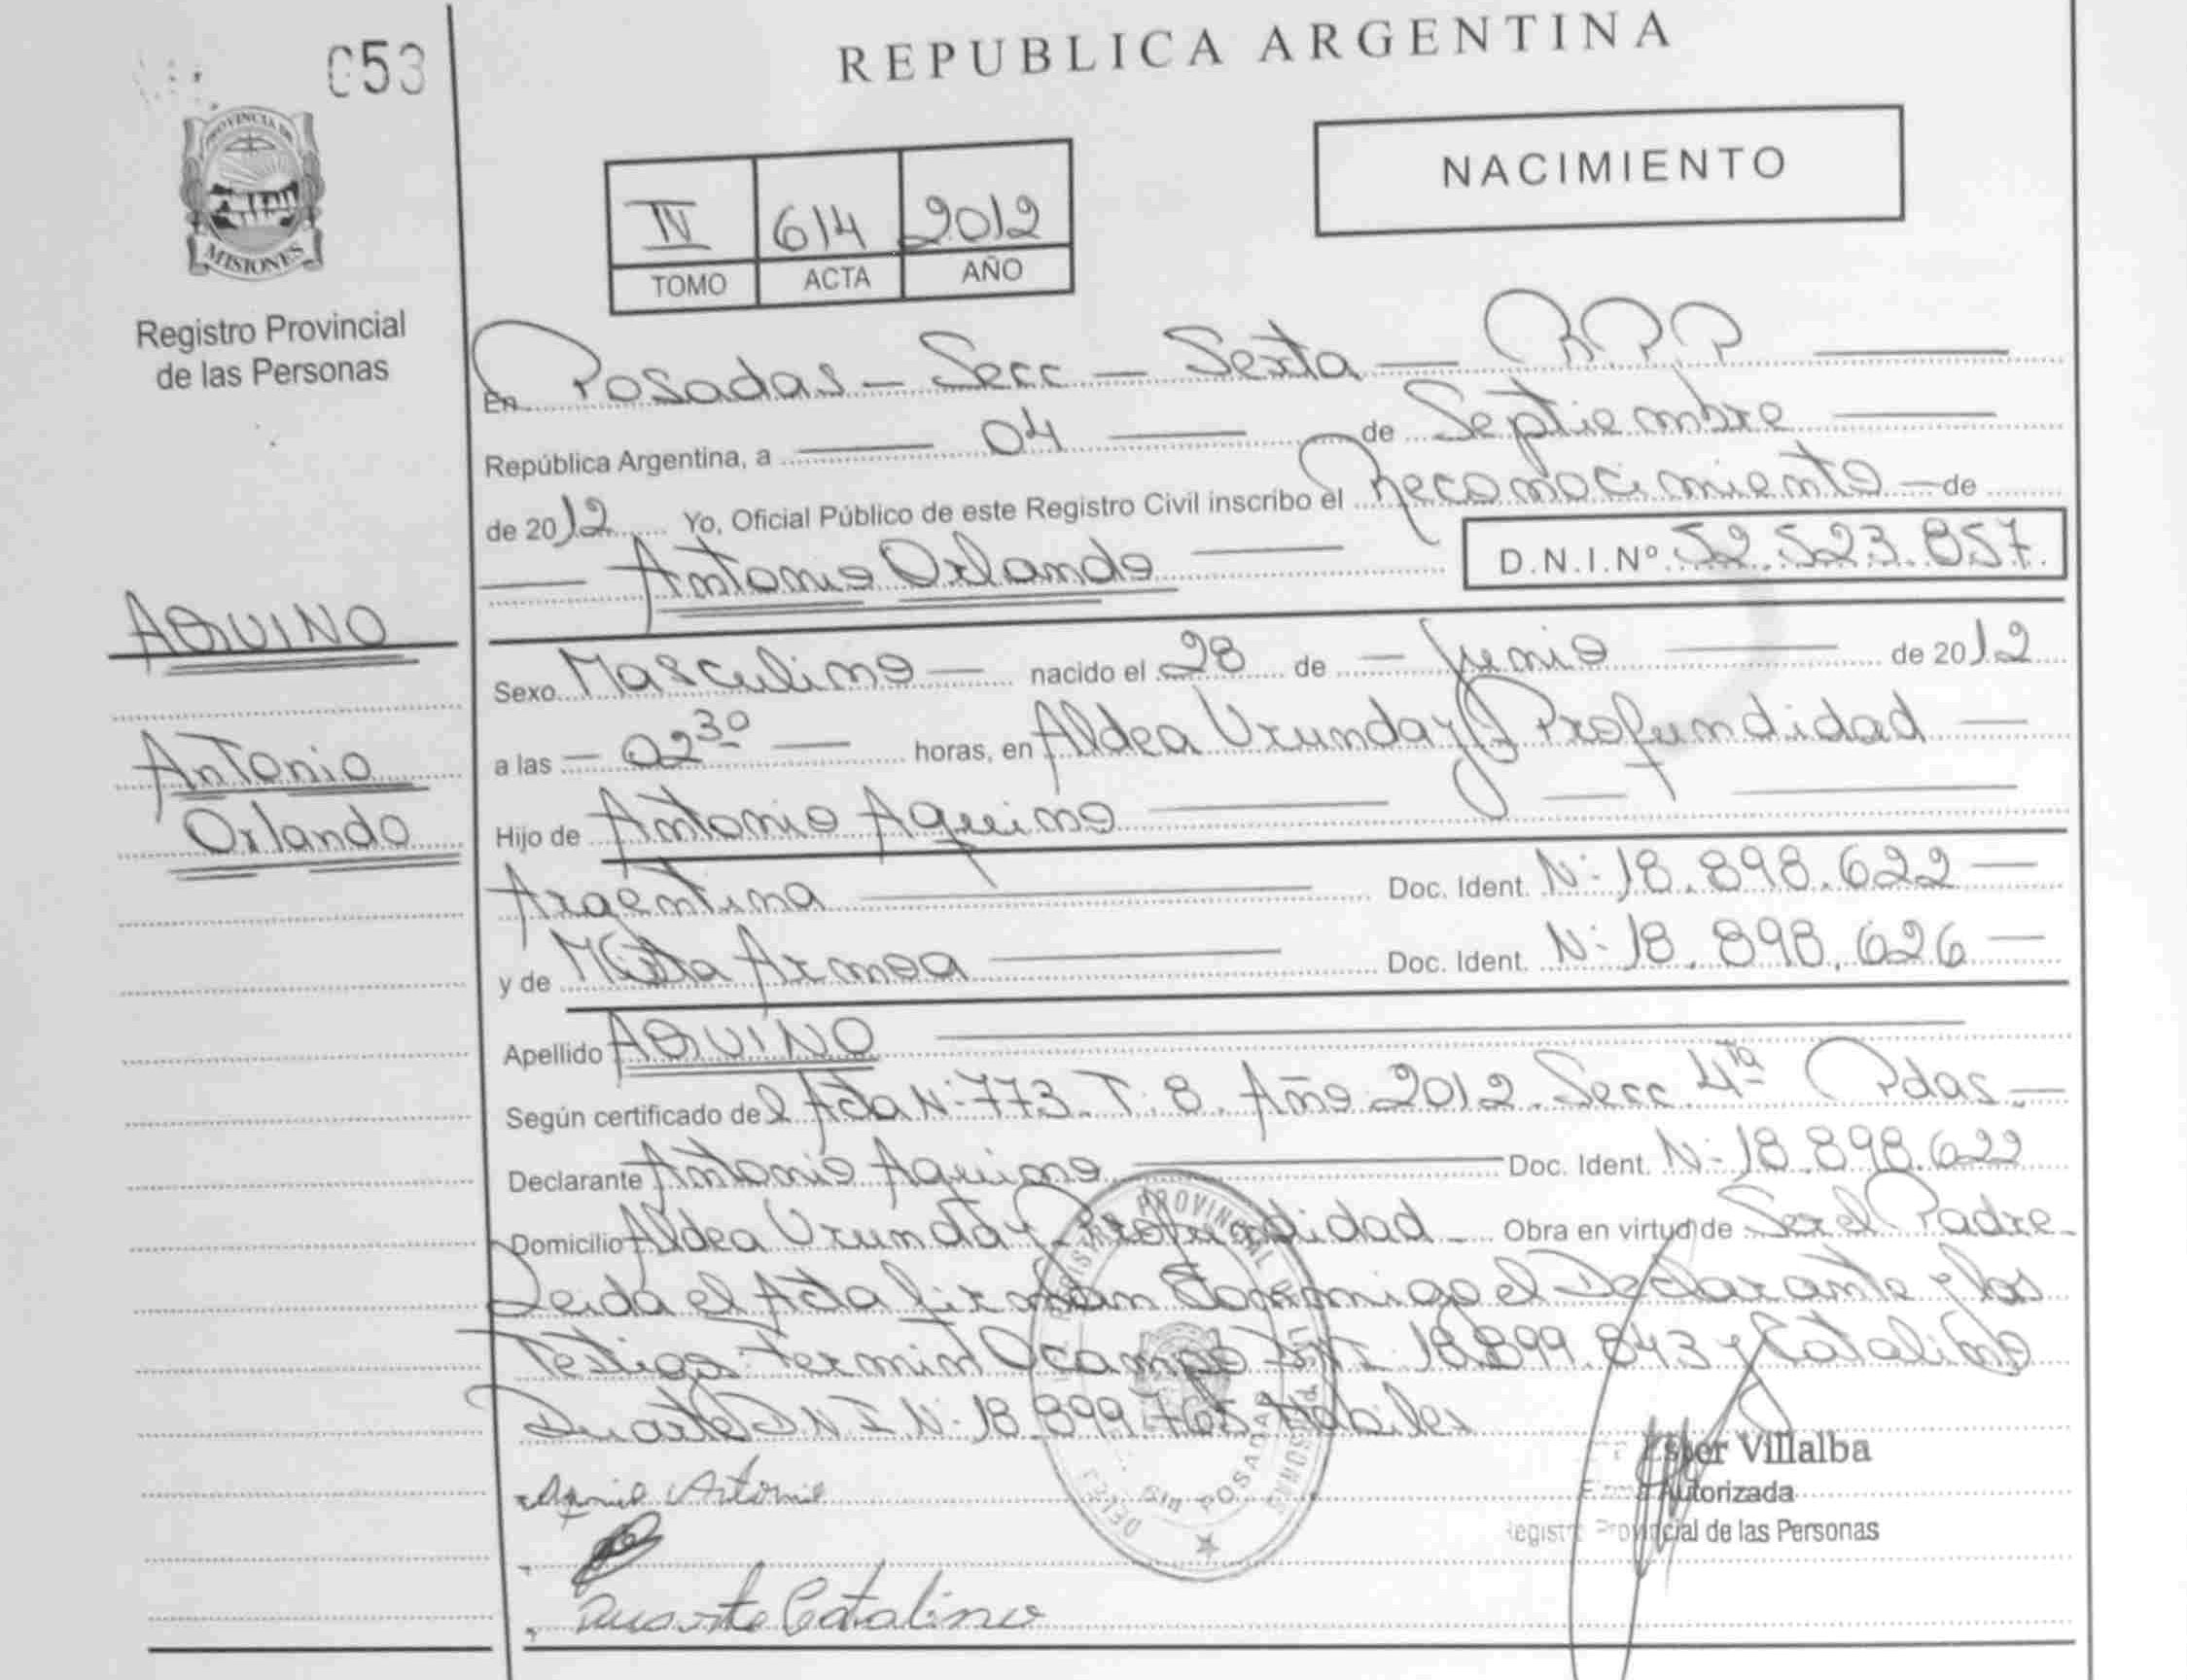 053
REPUBLICA ARGENTINA
PROVINCIA DE
MISIONES
Registro Provincial
de las Personas
NACIMIENTO
IV 614 2012
TOMO ACTA AÑO
En Posadas - Secc - Sexta - RPP
República Argentina, a 04 de Septiembre
de 2012 Yo, Oficial Público de este Registro Civil inscribo el Reconocimiento - de
Antonio Orlando D.N.I.Nº 52.523.857.
AQUINO
Antonio
Orlando
Sexo Masculino - nacido el 28 de - Junio de 2012
a las - 02 30 - horas, en Aldea Urunday Profundidad -
Hijo de Antonio Aquino
Argentina Doc. Ident. N: 18.898.622 -
y de Armoa Doc. Ident. N: 18.898.626 -
Apellido AQUINO
Según certificado del Acta N: 773. T: 8. Año 2012. Secc 4ta Pdas -
Declarante Antonio Aquino Doc. Ident. N: 18.898.622
Domicilio Aldea Urunday Profundidad - Obra en virtud de Ser el Padre -
Leida el Acta firman Conmigo el Declarante y los
Testigos Fermin Ocampo DNI: 18.899.843 y Catalino
Duarte D N I N: 18.899.765 Habiles
Antonio
Duarte Catalino
Ester Villalba
Firma Autorizada
Registro Provincial de las Personas
REGISTRO PROVINCIAL DE LAS PERSONAS
DELEG. 6ta POSADAS